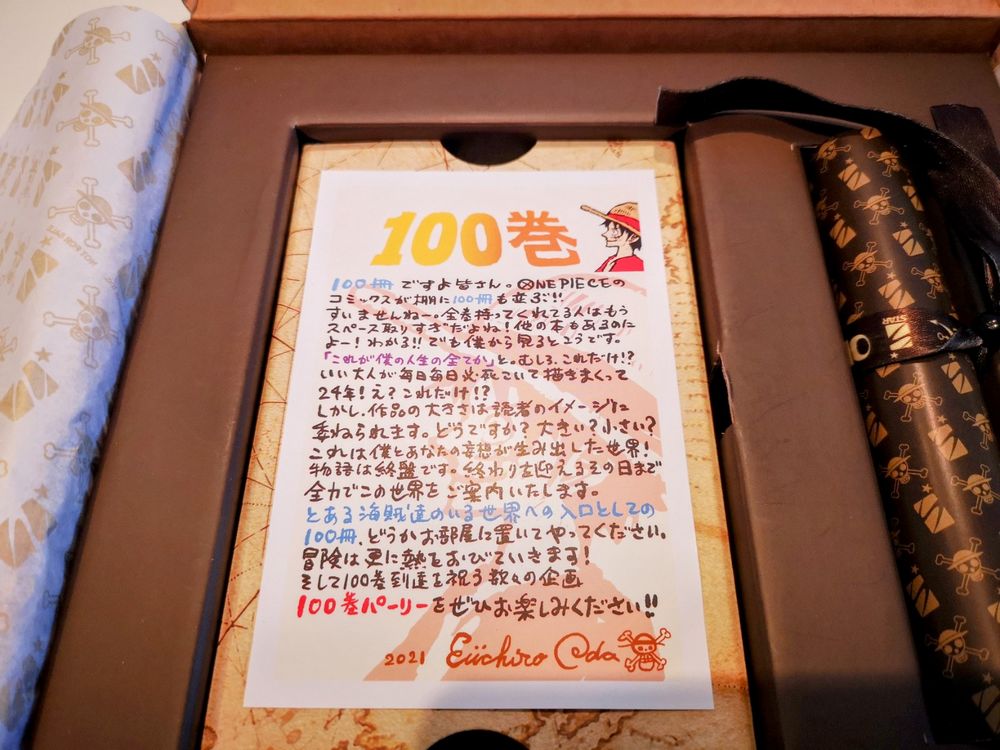 100巻
100冊ですよ皆さん。ONE PIECEの
コミックスが棚に100冊も並ぶ!!
すいませんねー。全巻持ってくれてる人はもう
スペース取りすぎだよね!他の本もあるのに
よー!わかる!!でも僕から見るとこうです。
「これが僕の人生の全てか」と。むしろ、これだけ!?
いい大人が毎日毎日必死こいて描きまくって
24年!え?これだけ!?
しかし、作品の大きさは読者のイメージに
委ねられます。どうですか?大きい?小さい?
これは僕とあなたの妄想が生み出した世界!
物語は終盤です。終わりを迎えるその日まで
全力でこの世界をご案内いたします。
とある海賊達のいる世界への入口としての
100冊、どうかお部屋に置いてやってください。
冒険は更に熱をおびていきます!
そして100巻到達を祝う数々の企画
100巻パーリーをぜひお楽しみください!!
2021 Eiichiro Oda
STAR